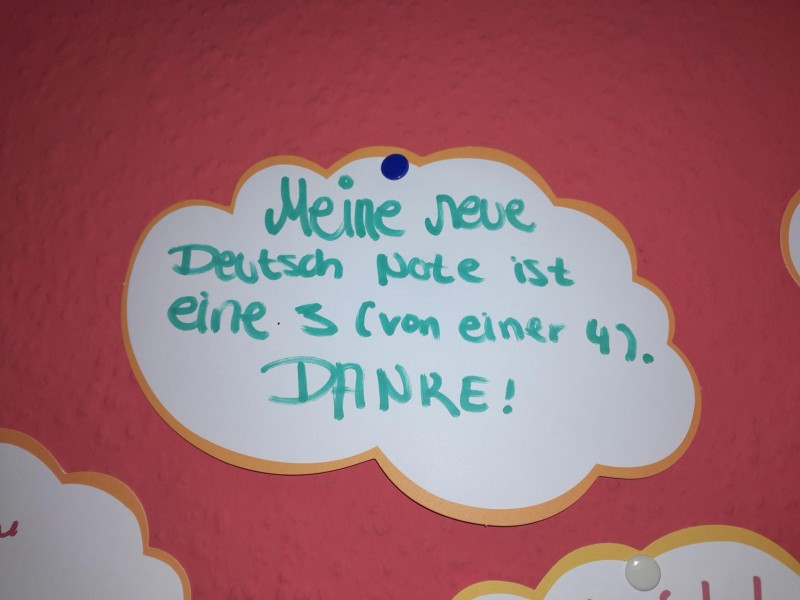 Meine neue
Deutsch Note ist
eine 3 (von einer 4).
DANKE!